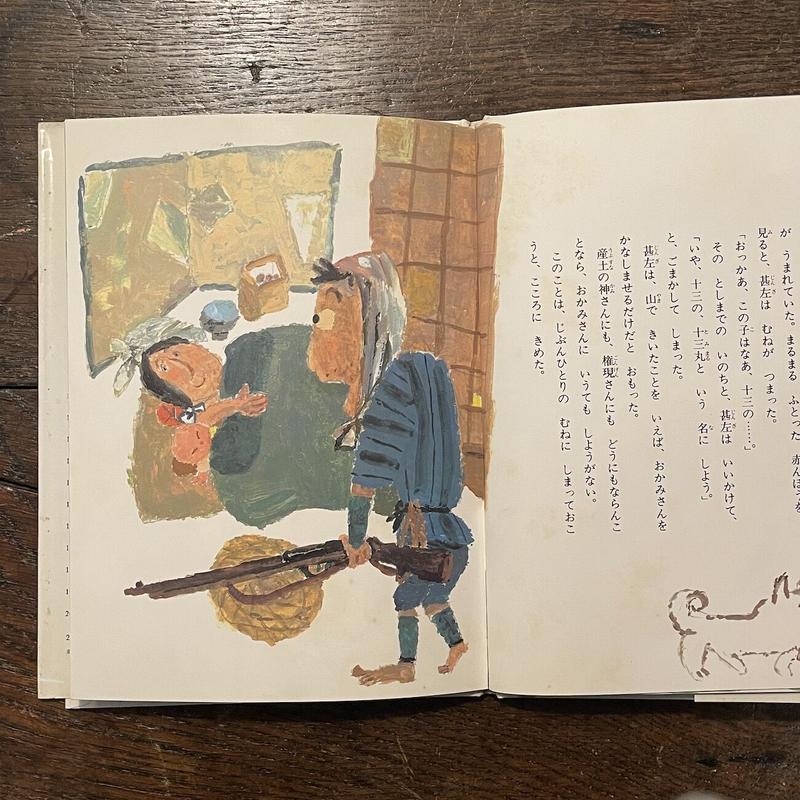 が うまれていた。まるまる ふとった 赤んぼうを
見ると、甚左は むねが つまった。
「おっかあ、この子はなあ、十三の……。」
その としまでの いのちと、甚左は いいかけて、
「いや、十三の、十三丸と いう 名に しよう。」
と、ごまかして しまった。
甚左は、山で きいたことを いえば、おかみさんを
かなしませるだけだと おもった。
産土の神さんにも、権現さんにも どうにもならんこ
となら、おかみさんに いうても しようがない。
このことは、じぶんひとりの むねに しまっておこ
うと、こころに きめた。